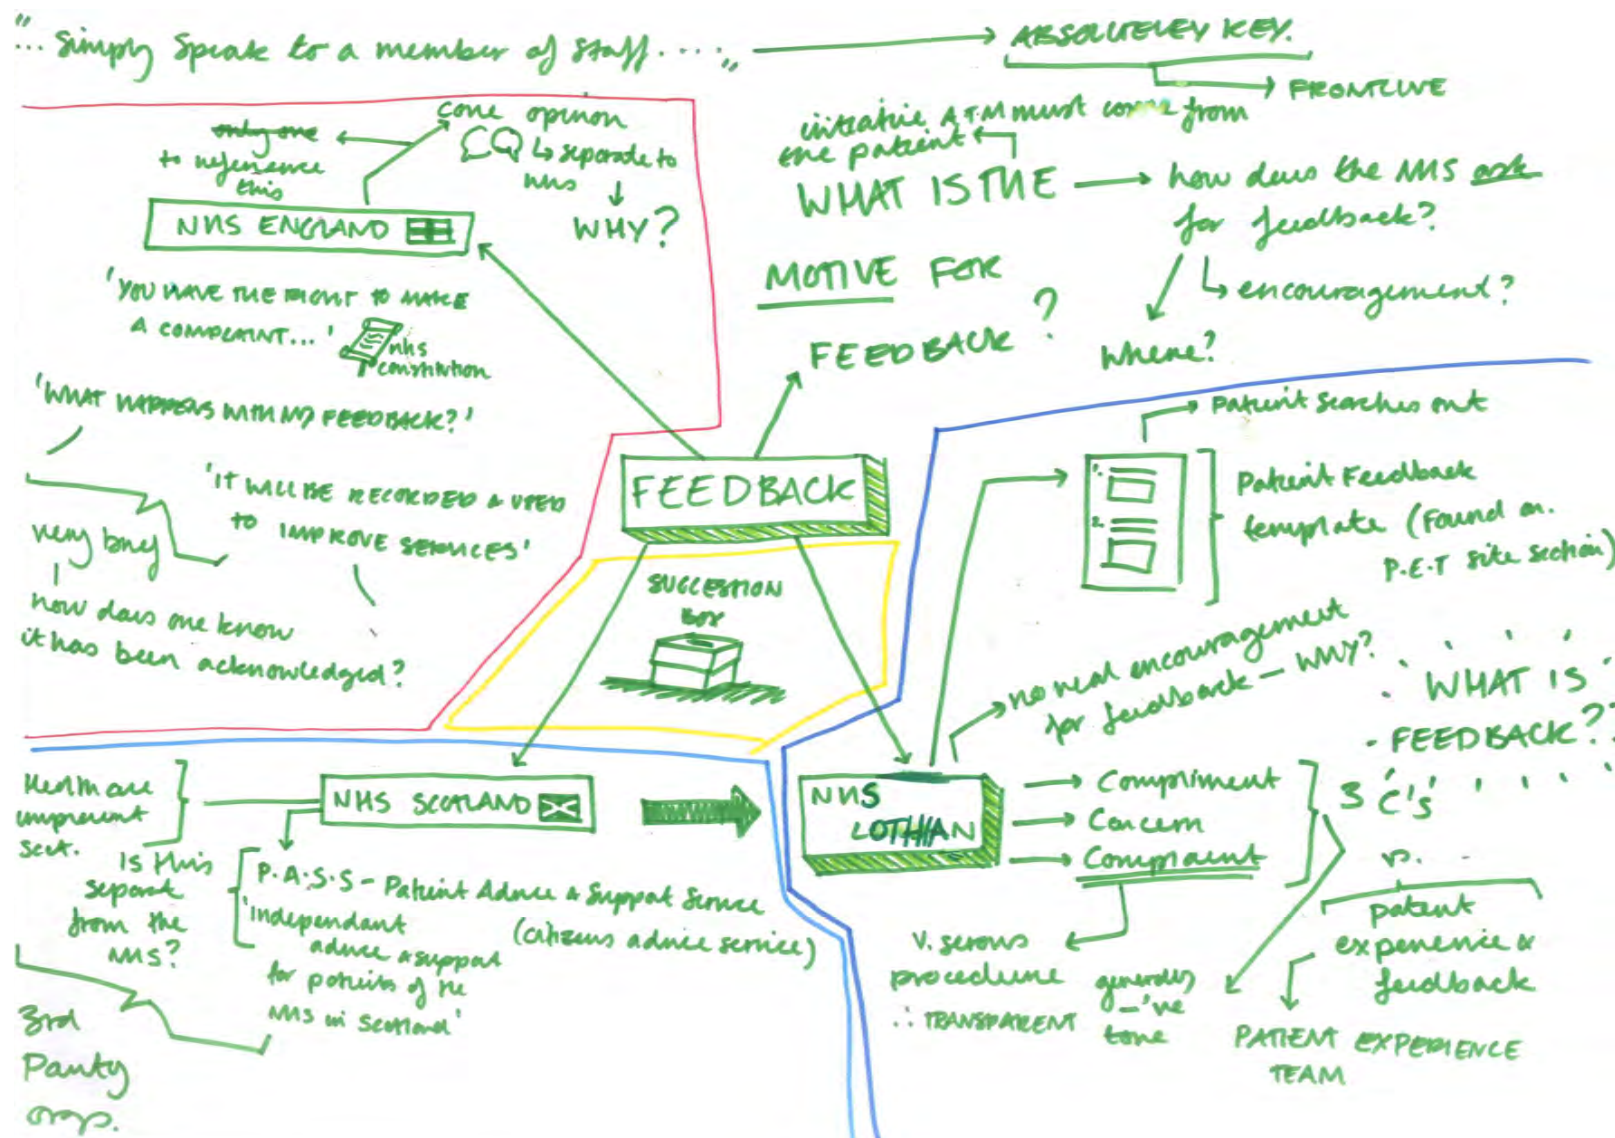 "... Simply Speak to a member of Staff....."
ABSOLUTELEY KEY.
FRONTLINE
only one
to reference
this
care opinion
separate to
nhs
WHY?
NHS ENGLAND
'YOU HAVE THE RIGHT TO MAKE
A COMPLAINT...'
nhs
constitution
'WHAT HAPPENS WITH MY FEEDBACK?'
'IT WILL BE RECORDED & USED
to IMPROVE SERVICES'
very brief
how does one know
it has been acknowledged?
initiative ATM must come from
the patient
WHAT IS THE
MOTIVE FOR
FEEDBACK?
how does the NHS ask
for feedback?
encouragement?
where?
FEEDBACK
SUGGESTION
BOX
patient searches out
1.
2.
Patient Feedback
template (Found on.
P.E.T site section)
no real encouragement
for feedback - WHY?
WHAT IS
FEEDBACK??
NHS SCOTLAND
Healthcare
improvement
Scot.
Is this
separate
from the
NHS?
3rd
Party
orgs.
P.A.S.S - Patient Advice & Support Service
(citizens advice service)
'independant
advice & support
for patients of the
NHS in Scotland'
NHS
LOTHIAN
Compliment
Concern
Complaint
3 C's
vs.
patient
experience &
feedback
PATIENT EXPERIENCE
TEAM
v. serious
procedure
∴ TRANSPARENT
generally
-'ve
tone